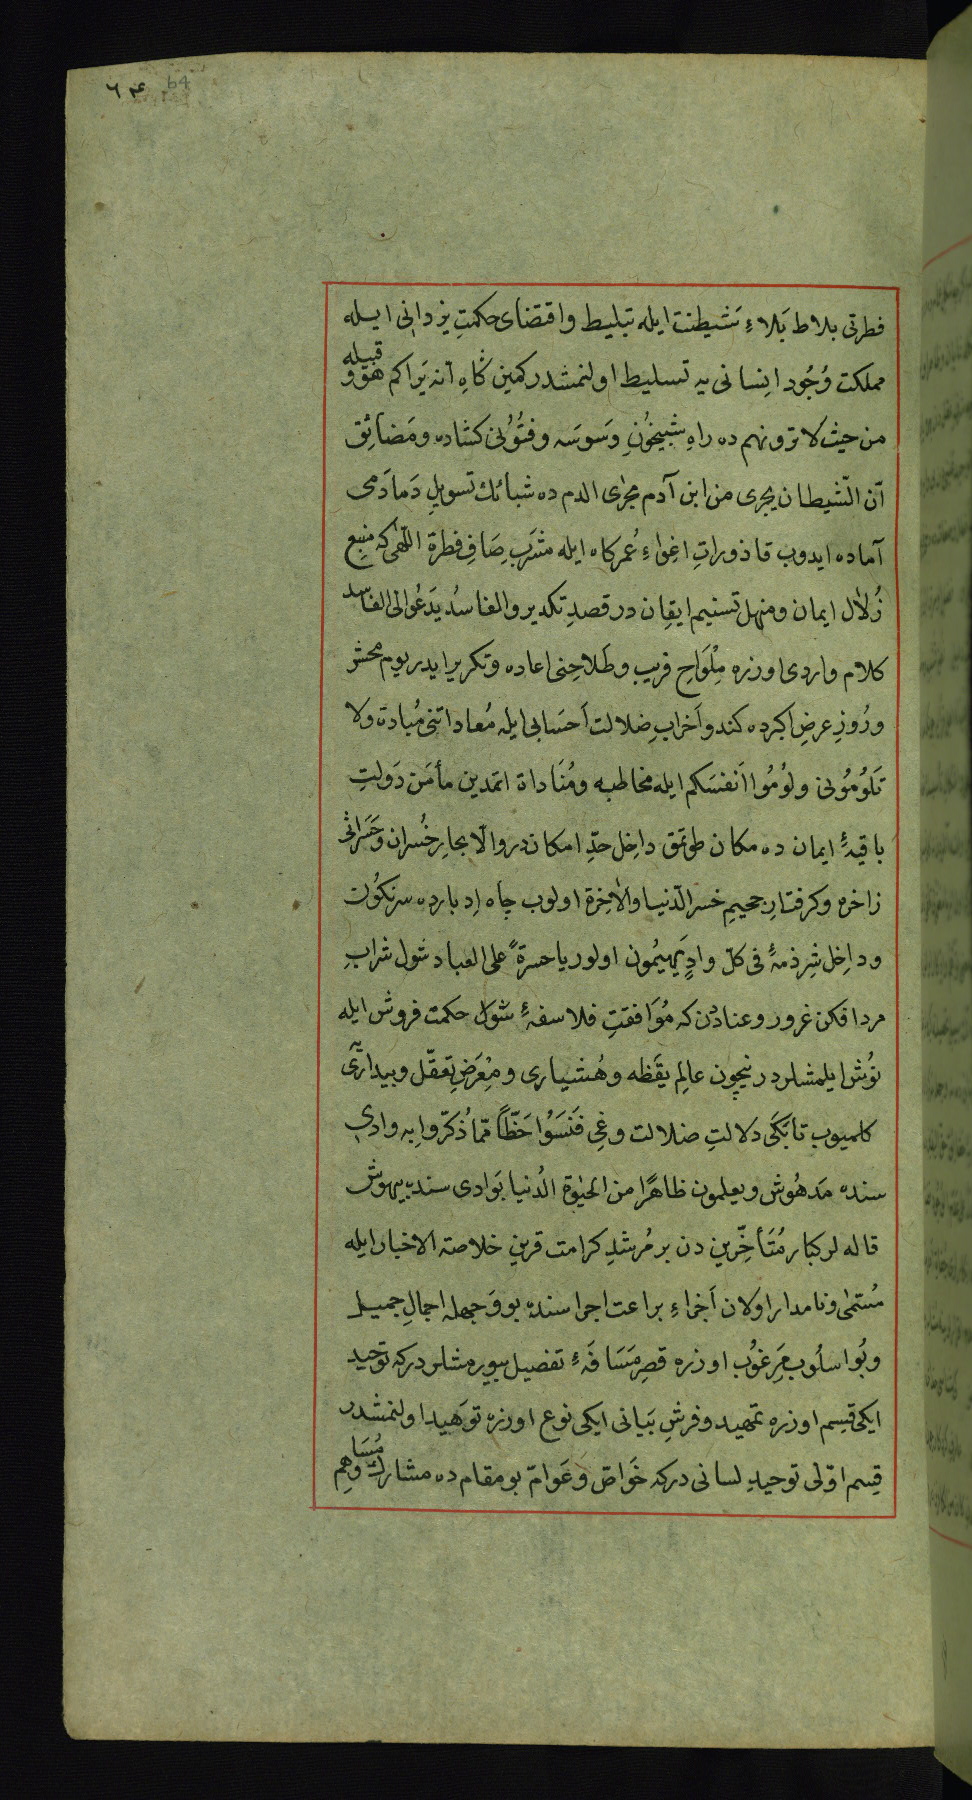 ٦٤ 64
فطرتی بلاط بَلاءِ شَیطنت ایله تبلیط و اقتضای حکمتِ یزدانی ایله
مملکت وُجُود اِنسانی یه تسلیط اولنمشدر کمین کَاهِ اَنه یَراکم هُوَ و قبیله
من حیث لا ترونهم ده راهِ شبیخُونِ وَسوَسَه و فُتُوُنی کشاده و مَضائِق
اَنّ الشّیطان یجری من ابن آدم مجرٰی الدم ده شبائك تسویلِ دَمادَمی
آماده ایدوب قاذوراتِ اِغِواءِ عُمرکاه ایله مَشرَبِ صَافِ فطرة اللّهی که منبع
زُلال ایمان و منهل تسنیم ایقان در قصدِ تکدیر و المفاسدُ یَدعُوا الی الفاسد
کلام واردی اوزره مِلْوَاحِ فریب و طَلاحِنی اعاده و تکریر ایدر یوم محشر
و رُوزِ عرضِ اکبرده کندو اَحزابِ ضلالت اَحسَابی ایله مُعاداتنی مُبادة و لا
تَلوُمُونی و لوُمُوا اَنفسَکم ایله مخاطبه و مُنَاداة اتمدین مأمَن دَولتِ
باقیۀ ایمان ده مکان طوتمق داخِل حدِّ امکان در و الّا بحارِ خُسران و حَسَراتی
زاخره و کرفتارِ جحیمِ خسر الدّنیا والاٰخِرة اولوب چاه اِدبارده سرنکُون
و داخِل شِرذمۀ فی کلّ وادٍ یَهیمُون اولور یا حسرةً علی العباد شول شرابِ
مرد افکن غرور و عناددن که مُوَافقتِ فلاسفۀ شول حکمت فروش ایله
نوُش ایلمشلردر نیچون عالِم یقَظه و هُشیاری و مِعْرَضِ تعقّل و بیداریّه
کلمیوب تا بَکَی دلالتِ ضلالت و غیِ فَنَسَوُا حَظّاً ممّا ذُکّروا به وادی
سنده مَدهُوش و یعلمون ظاهرًا من الحیٰوة الدُنیا بَوادی سنده بیهوش
قاله لر کبار مُتَأخِّرین دن بر مُرشدِ کرامت قرین خلاصة الاخبار ایله
مُسَمّٰی و نامدار اولان اَجزاءِ براعت اجرا سنده بو وَجهله اجمالِ جمیل
و بُو اسلُوب مَرغوُب اوزره قصرِ مَسَافۀ تفصیل بیورمشلردر که توحید
ایکی قِسِم اوزره تمهید و فرشِ بَیانی ایکی نوع اوزره توهَید اولنمشدر
قِسِم اوّلی توحیدِ لسانی درکه خَواصّ و عَوامّ بو مقام ده مشارك و مُسَاهِم